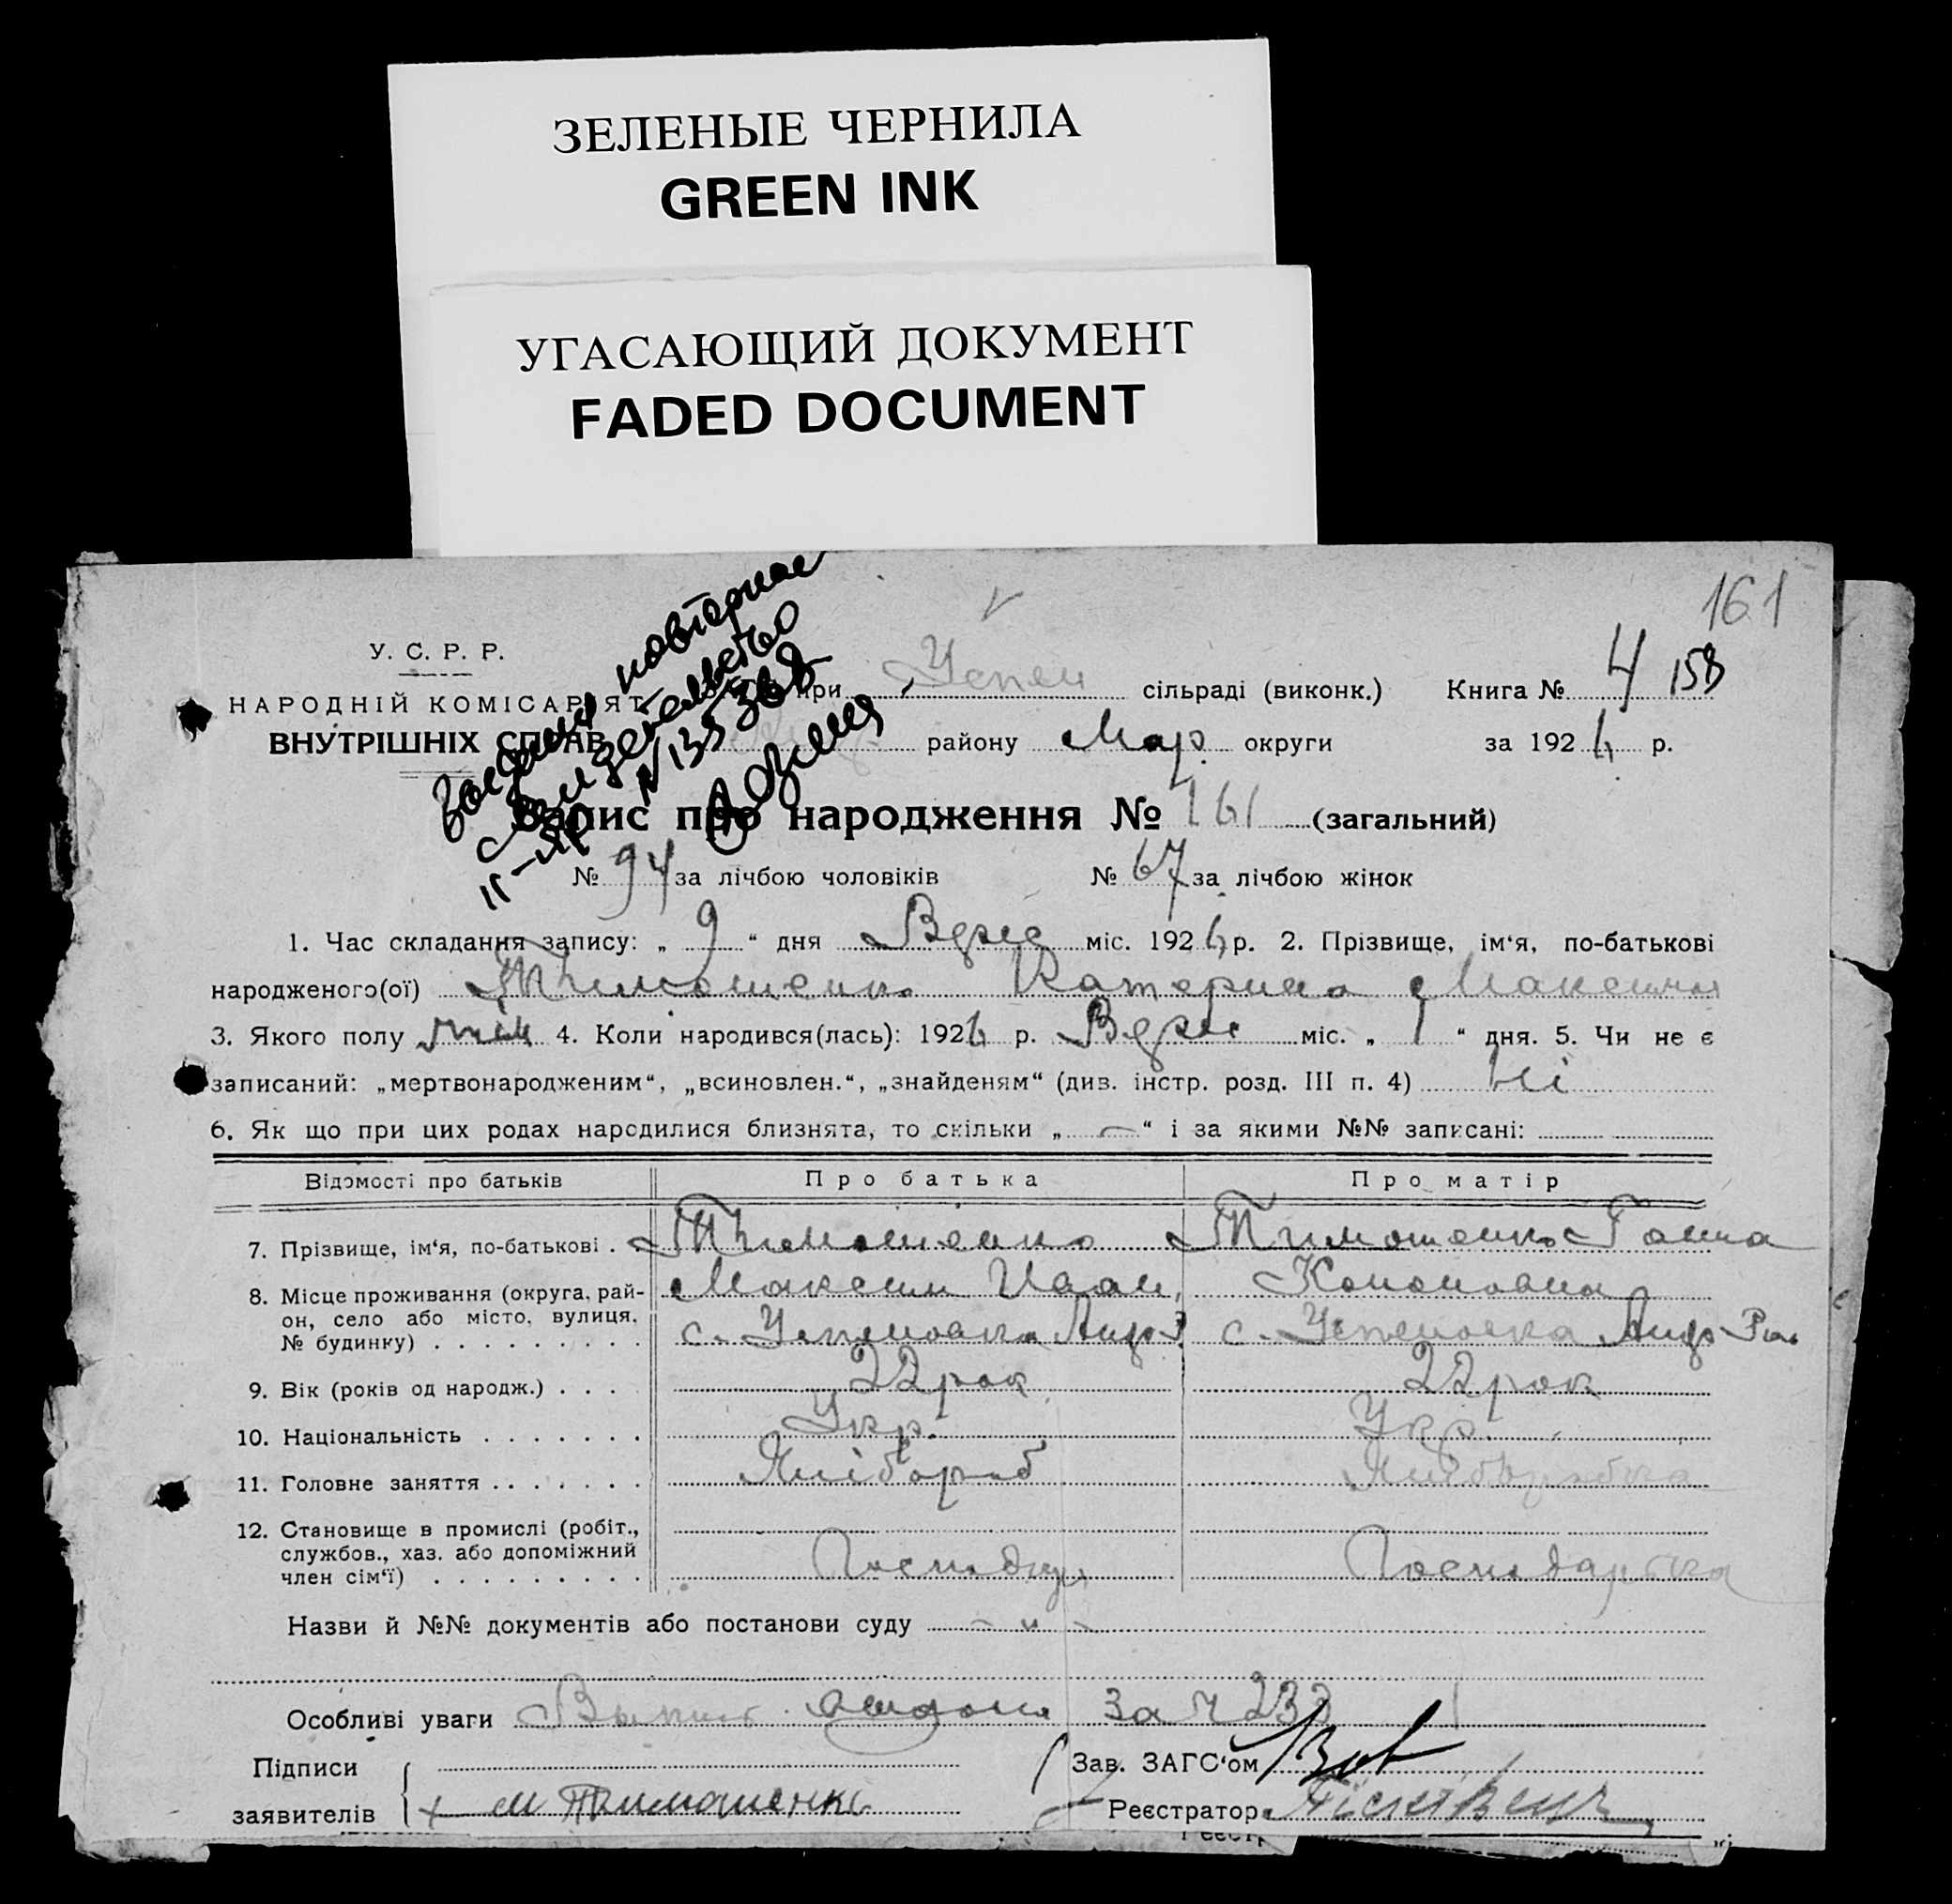 ЗЕЛЕНЫЕ ЧЕРНИЛА
GREEN INK
УГАСАЮЩИЙ ДОКУМЕНТ
FADED DOCUMENT
161
У. С. Р. Р.
НАРОДНІЙ КОМІСАРІЯТ
ВНУТРІШНІХ СПРАВ
повторное
свидетельство
II-ЯР №135368
при Успен сільраді (виконк.) Книга № 4 158
району Мар. округи за 1926 р.
Запис про народження № 161 (загальний)
№ 94 за лічбою чоловіків № 67 за лічбою жінок
1. Час складання запису: „ 9 “ дня Верес міс. 1926 р. 2. Прізвище, ім‘я, по-батькові
народженого(ої) Тимошенко Катерина Максимов
3. Якого полу жін 4. Коли народився(лась): 1926 р. Верес міс. „ 1 “ дня. 5. Чи не є
записаний: „мертвонародженим“, „всиновлен.“, „знайденям“ (див. інстр. розд. III п. 4) Ні
6. Як що при цих родах народилися близнята, то скільки „ — “ і за якими №№ записані:
Відомості про батьків Про батька Про матір
7. Прізвище, ім‘я, по-батькові . Тимошенко Тимошенко Ганна
Максим Иван. Кононовна
8. Місце проживання (округа, рай-
он, село або місто, вулиця,
№ будинку) . . . . . . . . . с. Успеновка Андр с. Успеновка Андр Ра
9. Вік (років од народж.) . . . 22 рок 22 рок
10. Національність . . . . . . . Укр. Укр.
11. Головне заняття . . . . . . . Хлібороб Хліборобка
12. Становище в промислі (робіт.,
службов., хаз. або допоміжний
член сім‘ї) . . . . . . . . . Господар Господарька
Назви й №№ документів або постанови суду — и —
Особливі уваги Выпись за Ч
Підписи
заявителів + М Тимошенко
Зав. ЗАГС‘ом
Реєстратор